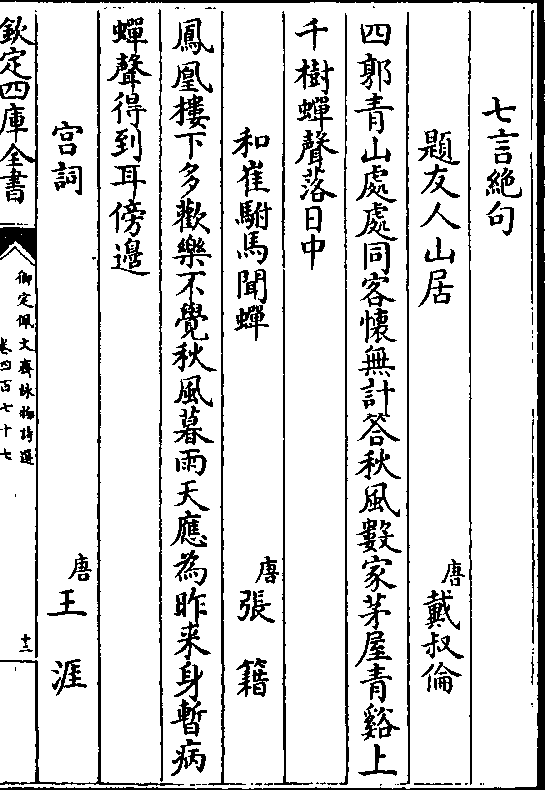 七言絶句
題友人山居
唐戴叔倫
四郭青山處處同客懷無計答秋風數家茅屋青谿上
千樹蟬聲落日中
和崔駙馬聞蟬
唐張籍
鳳凰樓下多歡樂不覺秋風暮雨天應為昨来身暫病
蟬聲得到耳傍邉
宫詞
唐王涯
欽定四庫全書
御定佩文齋詠物詩選
卷四百七十七
十三